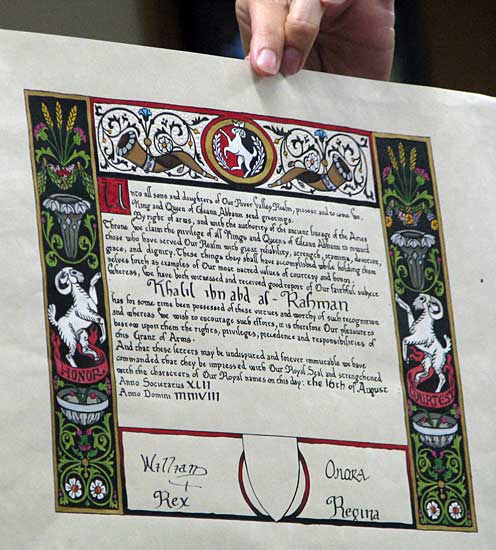 Unto all sons and daughters of Our River Valley Realm, present and to come We,
King and Queen of Gleann Abhann send greetings.
By right of arms, and with the authority of the ancient lineage of the Aries
Throne We claim the privilege of all Kings and Queens of Gleann Abhann to reward
those who have served Our Realm with great nobility, strength, stamina, devotion,
grace, and dignity. These things they shall have accomplished while holding them
selves forth as examples of Our most sacred values of courtesy and honor.
Whereas, We have both witnessed and received good report of Our faithful subject
Khalil ibn abd al-Rahman
has for some time been possessed of these virtues and worthy of such recognition
and whereas We wish to encourage such efforts, it is therefore Our pleasure to
bestow upon them the rights, privileges, precedence and responsibilities of
this Grant of Arms.
And that these letters may be undisputed and forever immutable we have
commanded that they be impressed with Our Royal Seal and strengthened
with the characters of Our Royal names on this day: the 16th of August
Anno Societatus XLII
Anno Domini MMVIII
HONOR
COURTESY
William
Rex
Onora
Regina